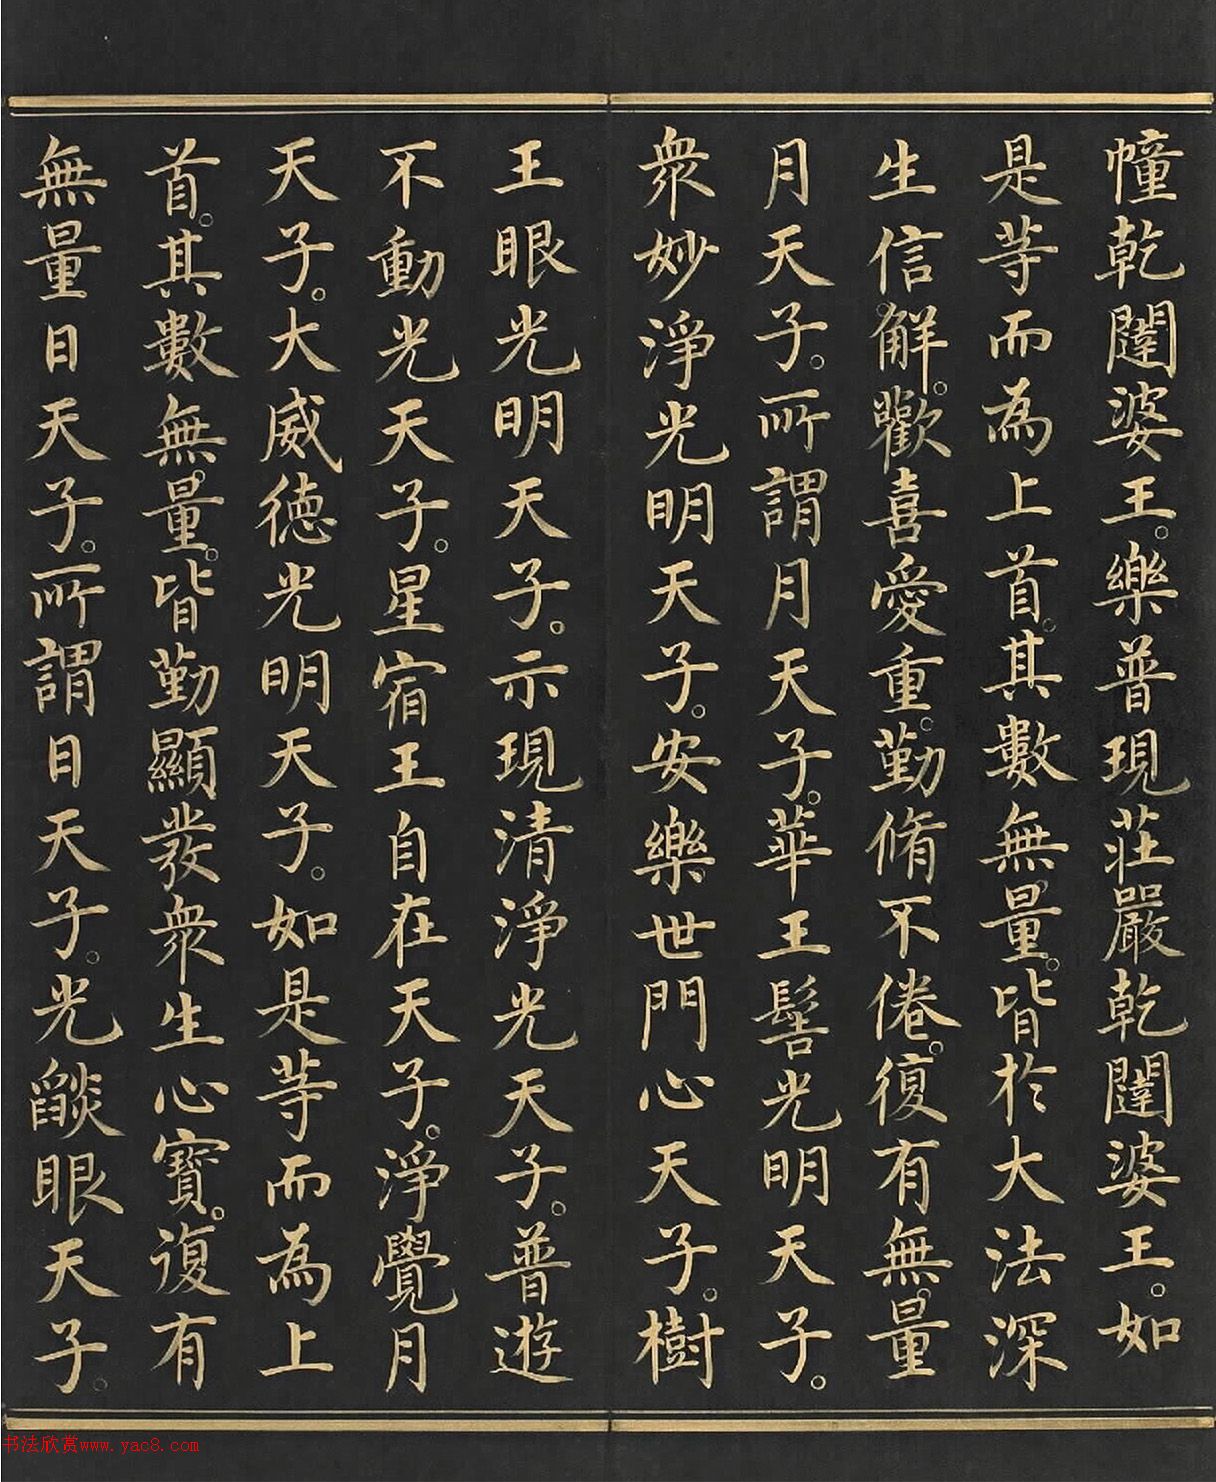 幢乾闥婆王。樂普現莊嚴乾闥婆王。如
是等而為上首。其數無量。皆於大法深
生信解。歡喜愛重。勤脩不倦。復有無量
月天子。所謂月天子。華王髻光明天子。
衆妙淨光明天子。安樂世門心天子。樹
王眼光明天子。示現清淨光天子。普遊
不動光天子。星宿王自在天子。淨覺月
天子。大威德光明天子。如是等而為上
首。其數無量。皆勤顯發衆生心寶。復有
無量日天子。所謂日天子。光燄眼天子。
书法欣赏www.yac8.com